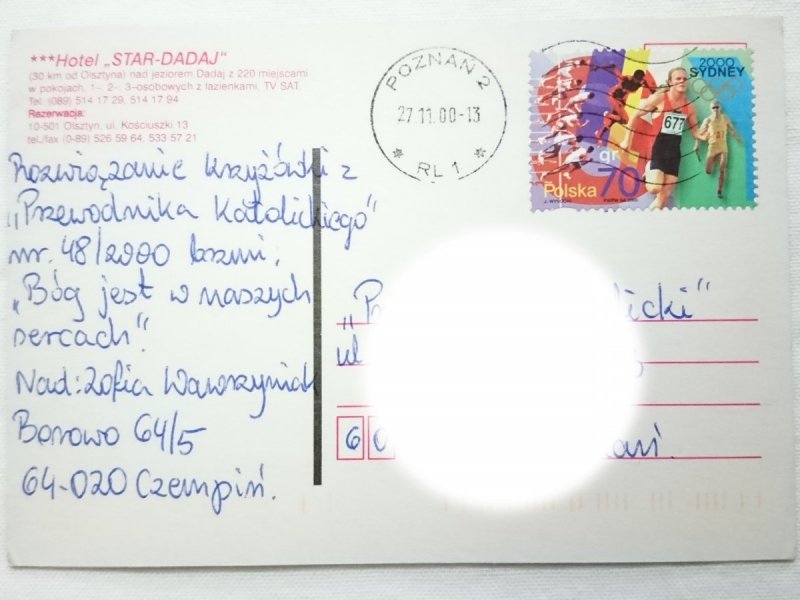 ***Hotel „STAR-DADAJ"
(30 km od Olsztyna) nad jeziorem Dadaj z 220 miejscami
w pokojach, 1- 2-, 3-osobowych z łazienkami, TV SAT.
Tel. (089) 514 17 29, 514 17 94
Rezerwacja:
10-501 Olsztyn, ul. Kościuszki 13
tel./fax (0-89) 526 59 64, 533 57 21
POZNAŃ 2
27.11.00-13
* RL 1 *
2000
SYDNEY
677
gr
Polska 70
Rozwiązanie krzyżówki z
„Przewodnika Katolickiego"
nr. 48/2000 brzmi,
„Bóg jest w naszych
sercach".
Nad: Zofia Wawrzyniak
Borowo 64/5
64-020 Czempiń.
„P licki"
ul
6 0 nań.